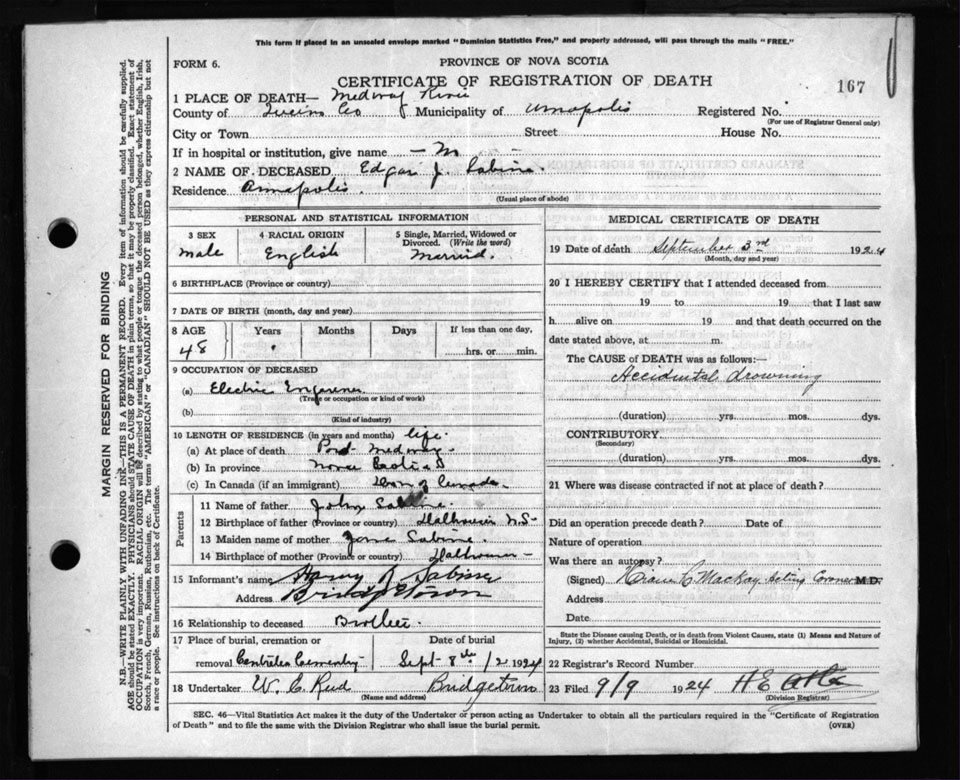 This form if placed in an unsealed envelope marked "Dominion Statistics Free," and properly addressed, will pass through the mails "FREE."
FORM 6.
PROVINCE OF NOVA SCOTIA
CERTIFICATE OF REGISTRATION OF DEATH
167
1 PLACE OF DEATH— Medway River
County of Queens Co Municipality of Annapolis Registered No.
(For use of Registrar General only)
City or Town Street House No.
If in hospital or institution, give name
2 NAME OF DECEASED Edgar J. Sabine.
Residence Annapolis.
(Usual place of abode)
PERSONAL AND STATISTICAL INFORMATION
3 SEX 4 RACIAL ORIGIN 5 Single, Married, Widowed or Divorced. (Write the word)
male English Married.
6 BIRTHPLACE (Province or country)
7 DATE OF BIRTH (month, day and year)
8 AGE Years Months Days If less than one day,
48 hrs. or min.
9 OCCUPATION OF DECEASED
(a) Electric
(Trade or occupation or kind of work)
(b)
(Kind of industry)
10 LENGTH OF RESIDENCE (in years and months) life.
(a) At place of death Port Medway
(b) In province Nova Scotia
(c) In Canada (if an immigrant) Canada.
Parents
11 Name of father John Sabine.
12 Birthplace of father (Province or country) Dalhousie N.S-
13 Maiden name of mother Jane Sabine.
14 Birthplace of mother (Province or country) Dalhousie -
15 Informant's name Harry Sabine
Address Bridgetown
16 Relationship to deceased Brother
17 Place of burial, cremation or Date of burial
removal Sept 8th 1924
18 Undertaker W. C. Reed Bridgetown
(Name and address)
MEDICAL CERTIFICATE OF DEATH
19 Date of death September 3rd 1924
(Month, day and year)
20 I HEREBY CERTIFY that I attended deceased from
19 to 19 that I last saw
h alive on 19 and that death occurred on the
date stated above, at m.
The CAUSE of DEATH was as follows:—
Accidental drowning
(duration) yrs. mos. dys.
CONTRIBUTORY
(Secondary)
(duration) yrs. mos. dys.
21 Where was disease contracted if not at place of death?
Did an operation precede death? Date of
Nature of operation
Was there an autopsy?
(Signed) MacKay Acting Coroner M.D.
Address
Date
State the Disease causing Death, or in death from Violent Causes, state (1) Means and Nature of
Injury, (2) whether Accidental, Suicidal or Homicidal.
22 Registrar's Record Number
23 Filed 9/9 1924 H E
(Division Registrar)
SEC. 46—Vital Statistics Act makes it the duty of the Undertaker or person acting as Undertaker to obtain all the particulars required in the "Certificate of Registration
of Death" and to file the same with the Division Registrar who shall issue the burial permit. (OVER)
MARGIN RESERVED FOR BINDING
N.B.—WRITE PLAINLY WITH UNFADING INK—THIS IS A PERMANENT RECORD. Every item of information should be carefully supplied.
AGE should be stated EXACTLY. PHYSICIANS should STATE CAUSE OF DEATH in plain terms, so that it may be properly classified. Exact statement of
OCCUPATION is very important. RACIAL ORIGIN will be described by stating to what people or tongue the deceased person belonged, whether English, Irish,
Scotch, French, German, Russian, Ruthenian, etc. The terms "AMERICAN" or "CANADIAN" SHOULD NOT BE USED as they express citizenship but not
a race or people. See instructions on back of Certificate.